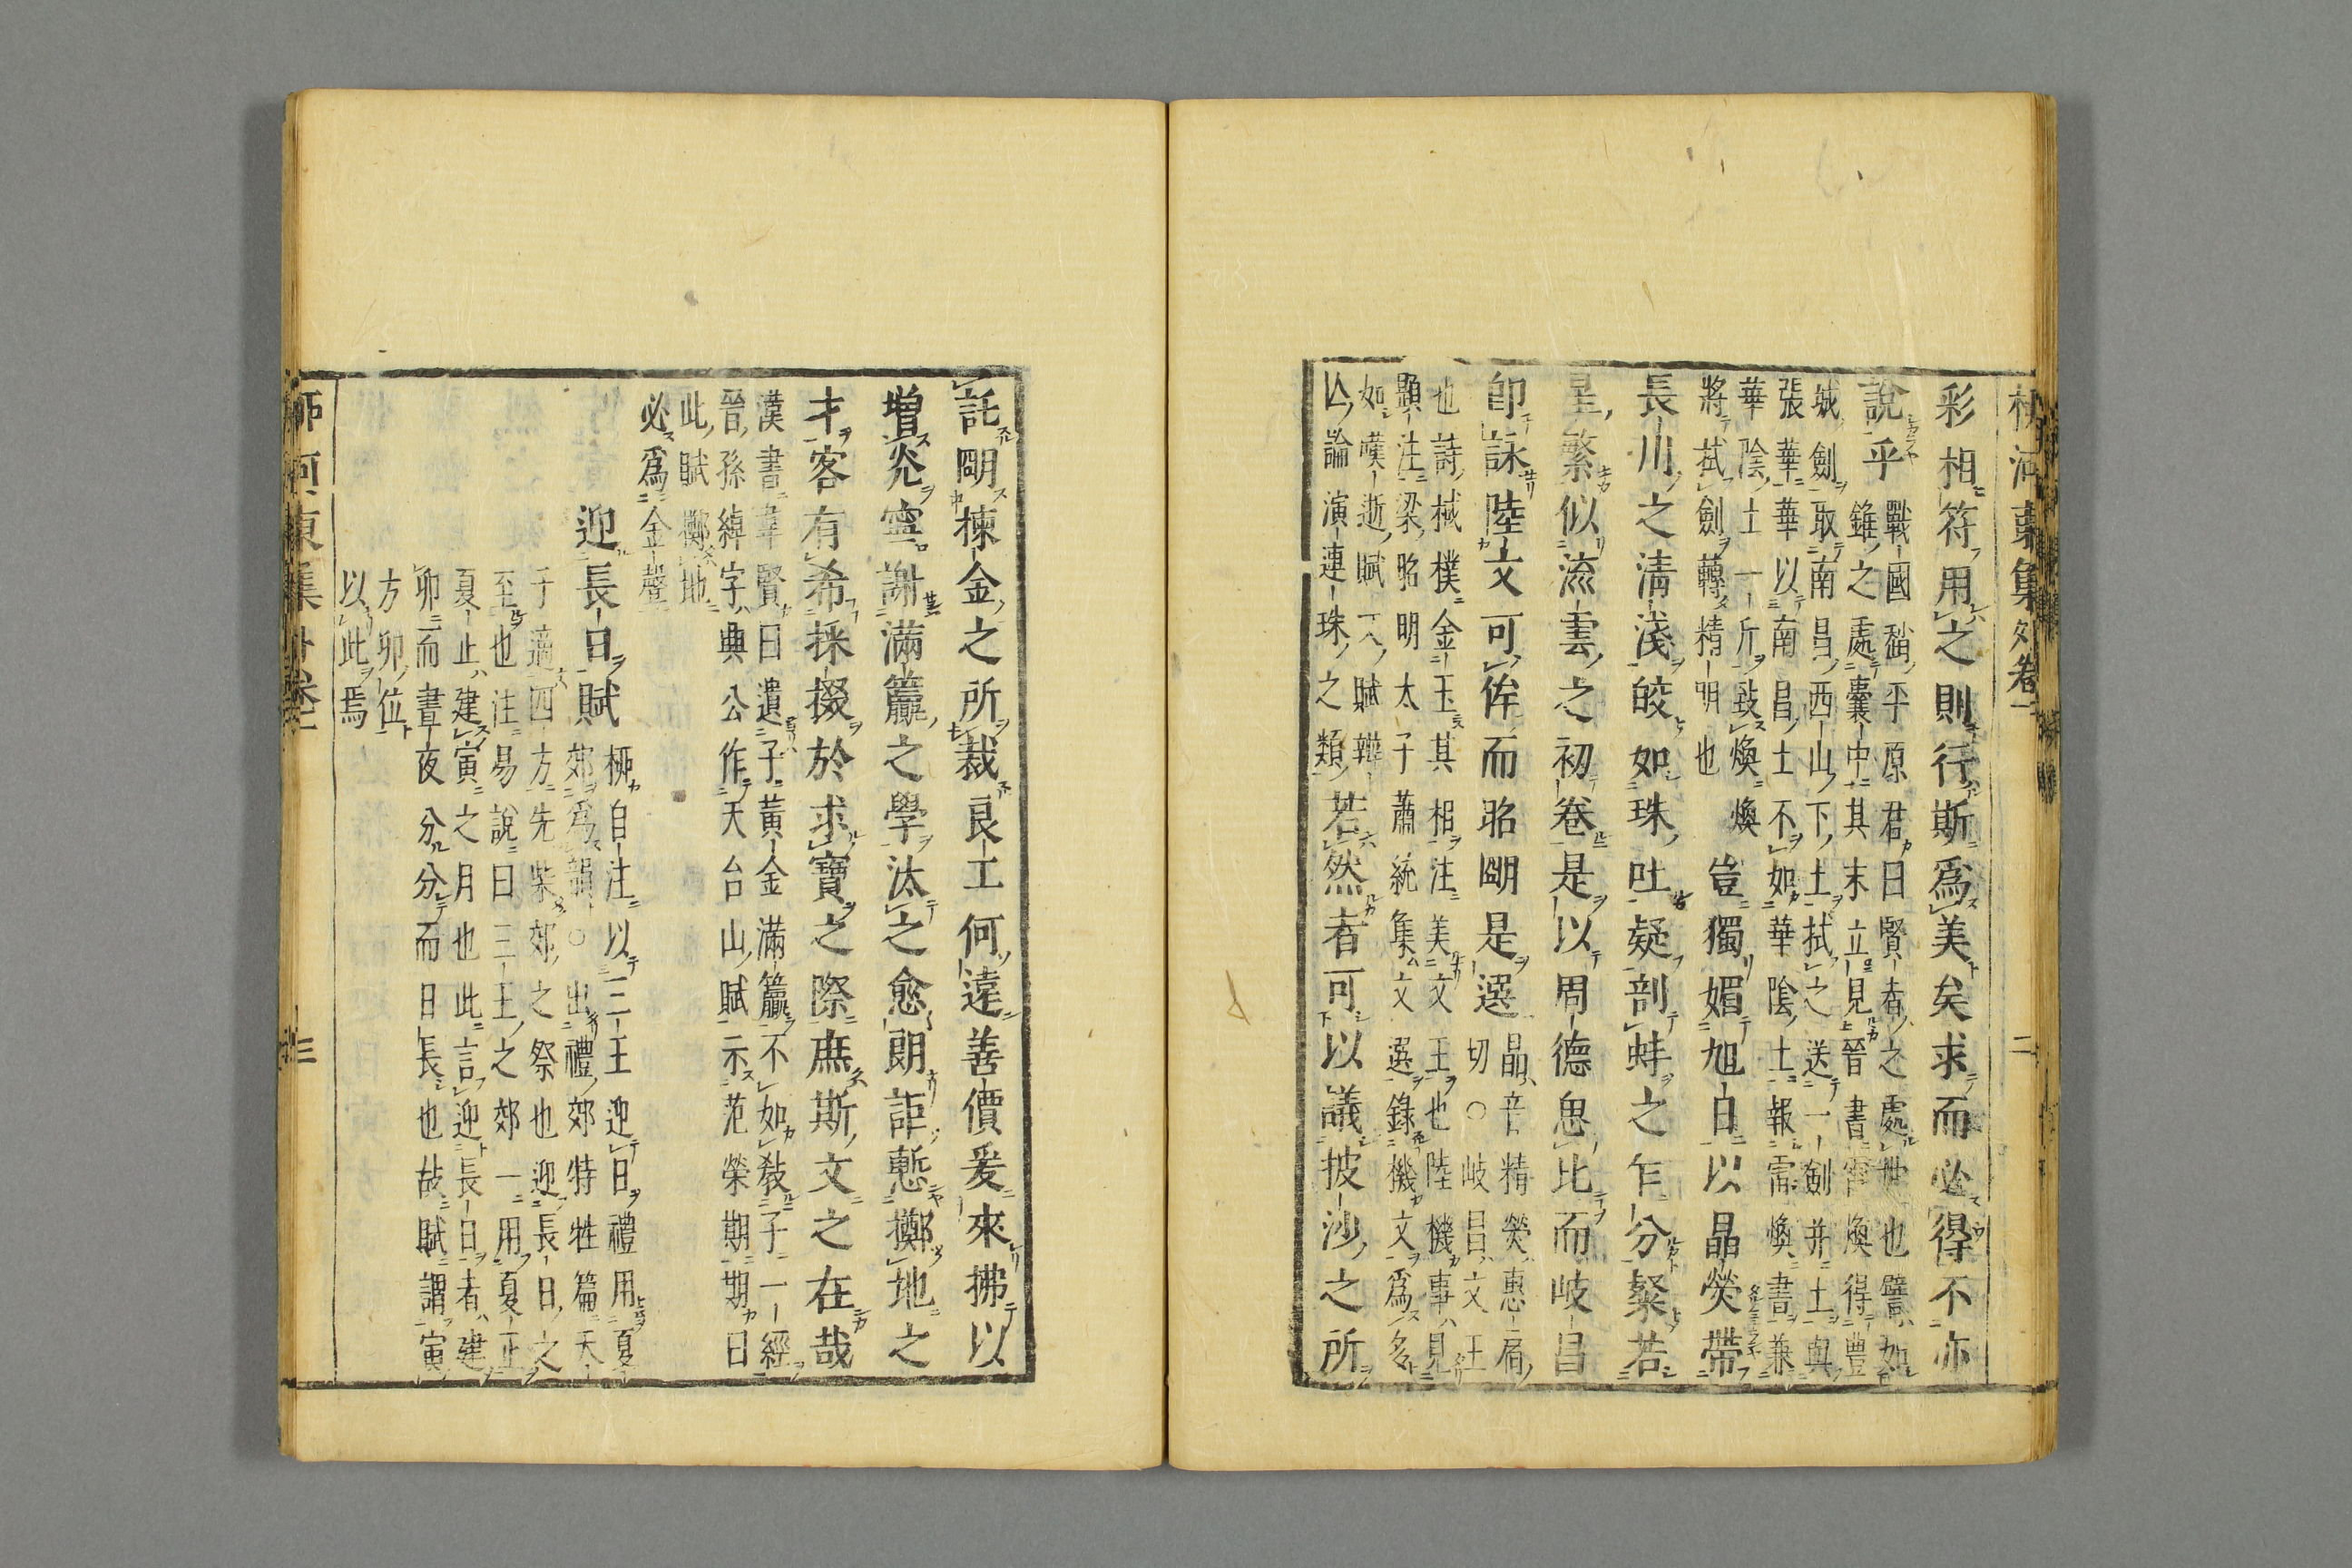 柳河東集外卷一 二
彩相符用之則行斯爲美矣求而必得不亦
說乎
戰國趙平原君曰賢者之處世也譬如
錐之處囊中其末立見晉書雷煥得豐
城劍取南昌西山下土拭之送一劍并土與
張華華以南昌土不如華陰土報雷煥書兼
華陰土一斤致煥煥
將拭劍轉精明也
豈獨媚旭日以晶熒帶
長川之淸淺皎如珠吐疑剖蚌之乍分粲若
星繁似流雲之初卷是以周德思比而岐昌
卽詠陸文可侔而昭明是選
晶音精熒惠扃
切○岐昌文王
也詩棫樸金玉其相注美文王也陸機事見
顯注梁昭明太子蕭統集文選錄機文爲多
如嘆逝賦一人賦辨
亾論演連珠之類
若然者可以議披沙之所
託明揀金之所裁良工何遠善價爰來拂以
增光寧謝滿籯之學汰之愈朗詎慙擲地之
才客有希採掇於求寶之際庶斯文之在哉
漢書韋賢曰遺子黃金滿籯不如敎子一經
晉孫綽字典公作天台山賦示范榮期期曰
此賦擲地
必爲金聲
迎長日賦
柳自注以三王迎日禮用夏
郊爲韻○出禮郊特牲篇天
子適四方先柴郊之祭也迎長日之
至也注易說曰三王之郊一用夏正
夏止建寅之月也此言迎長日者建
卯而晝夜分分而日長也故賦謂寅
方卯位
以此焉
柳河東集外卷一 三